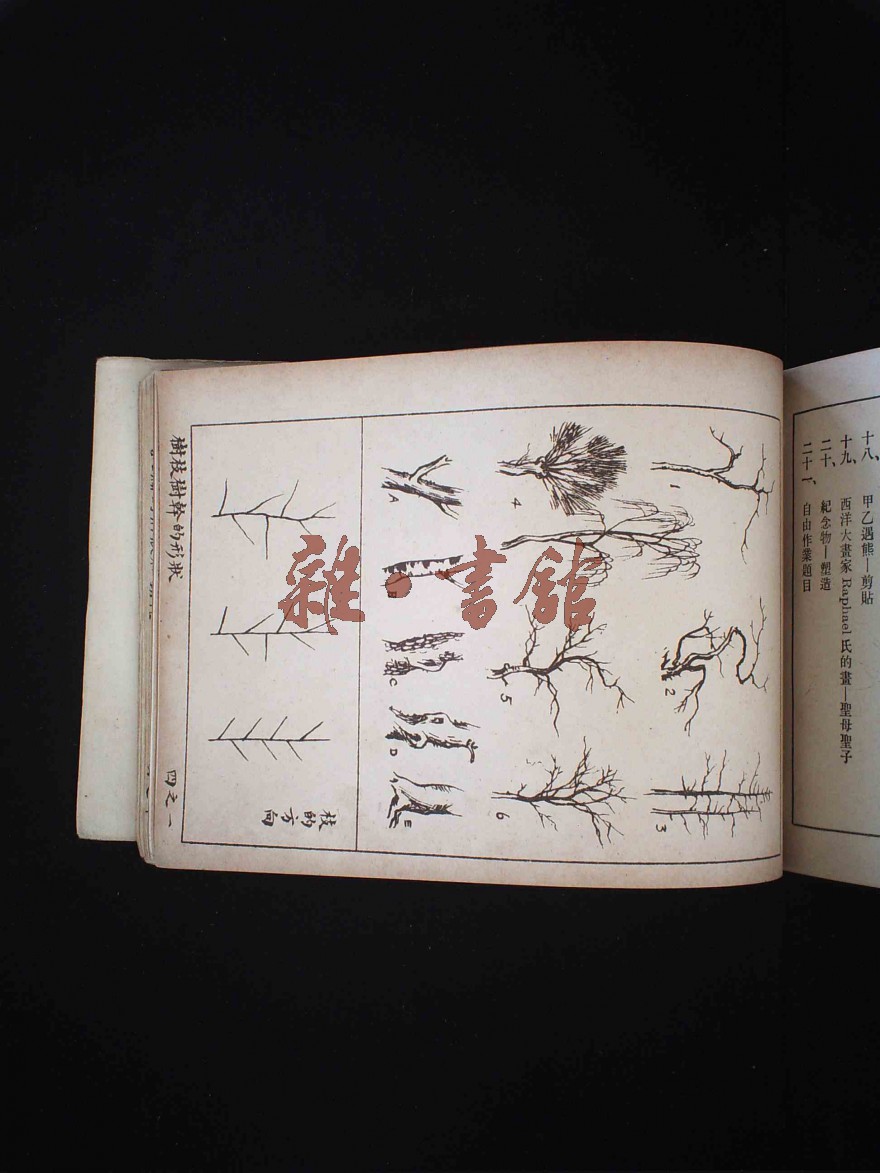 十八、甲乙遇熊—剪貼
十九、西洋大畫家 Raphael 氏的畫—聖母聖子
二十、紀念物—塑造
二十一、自由作業題目
1
2
3
4
5
6
A
C
D
E
枝的方向
樹枝樹幹的形狀
四之一
雜·書館